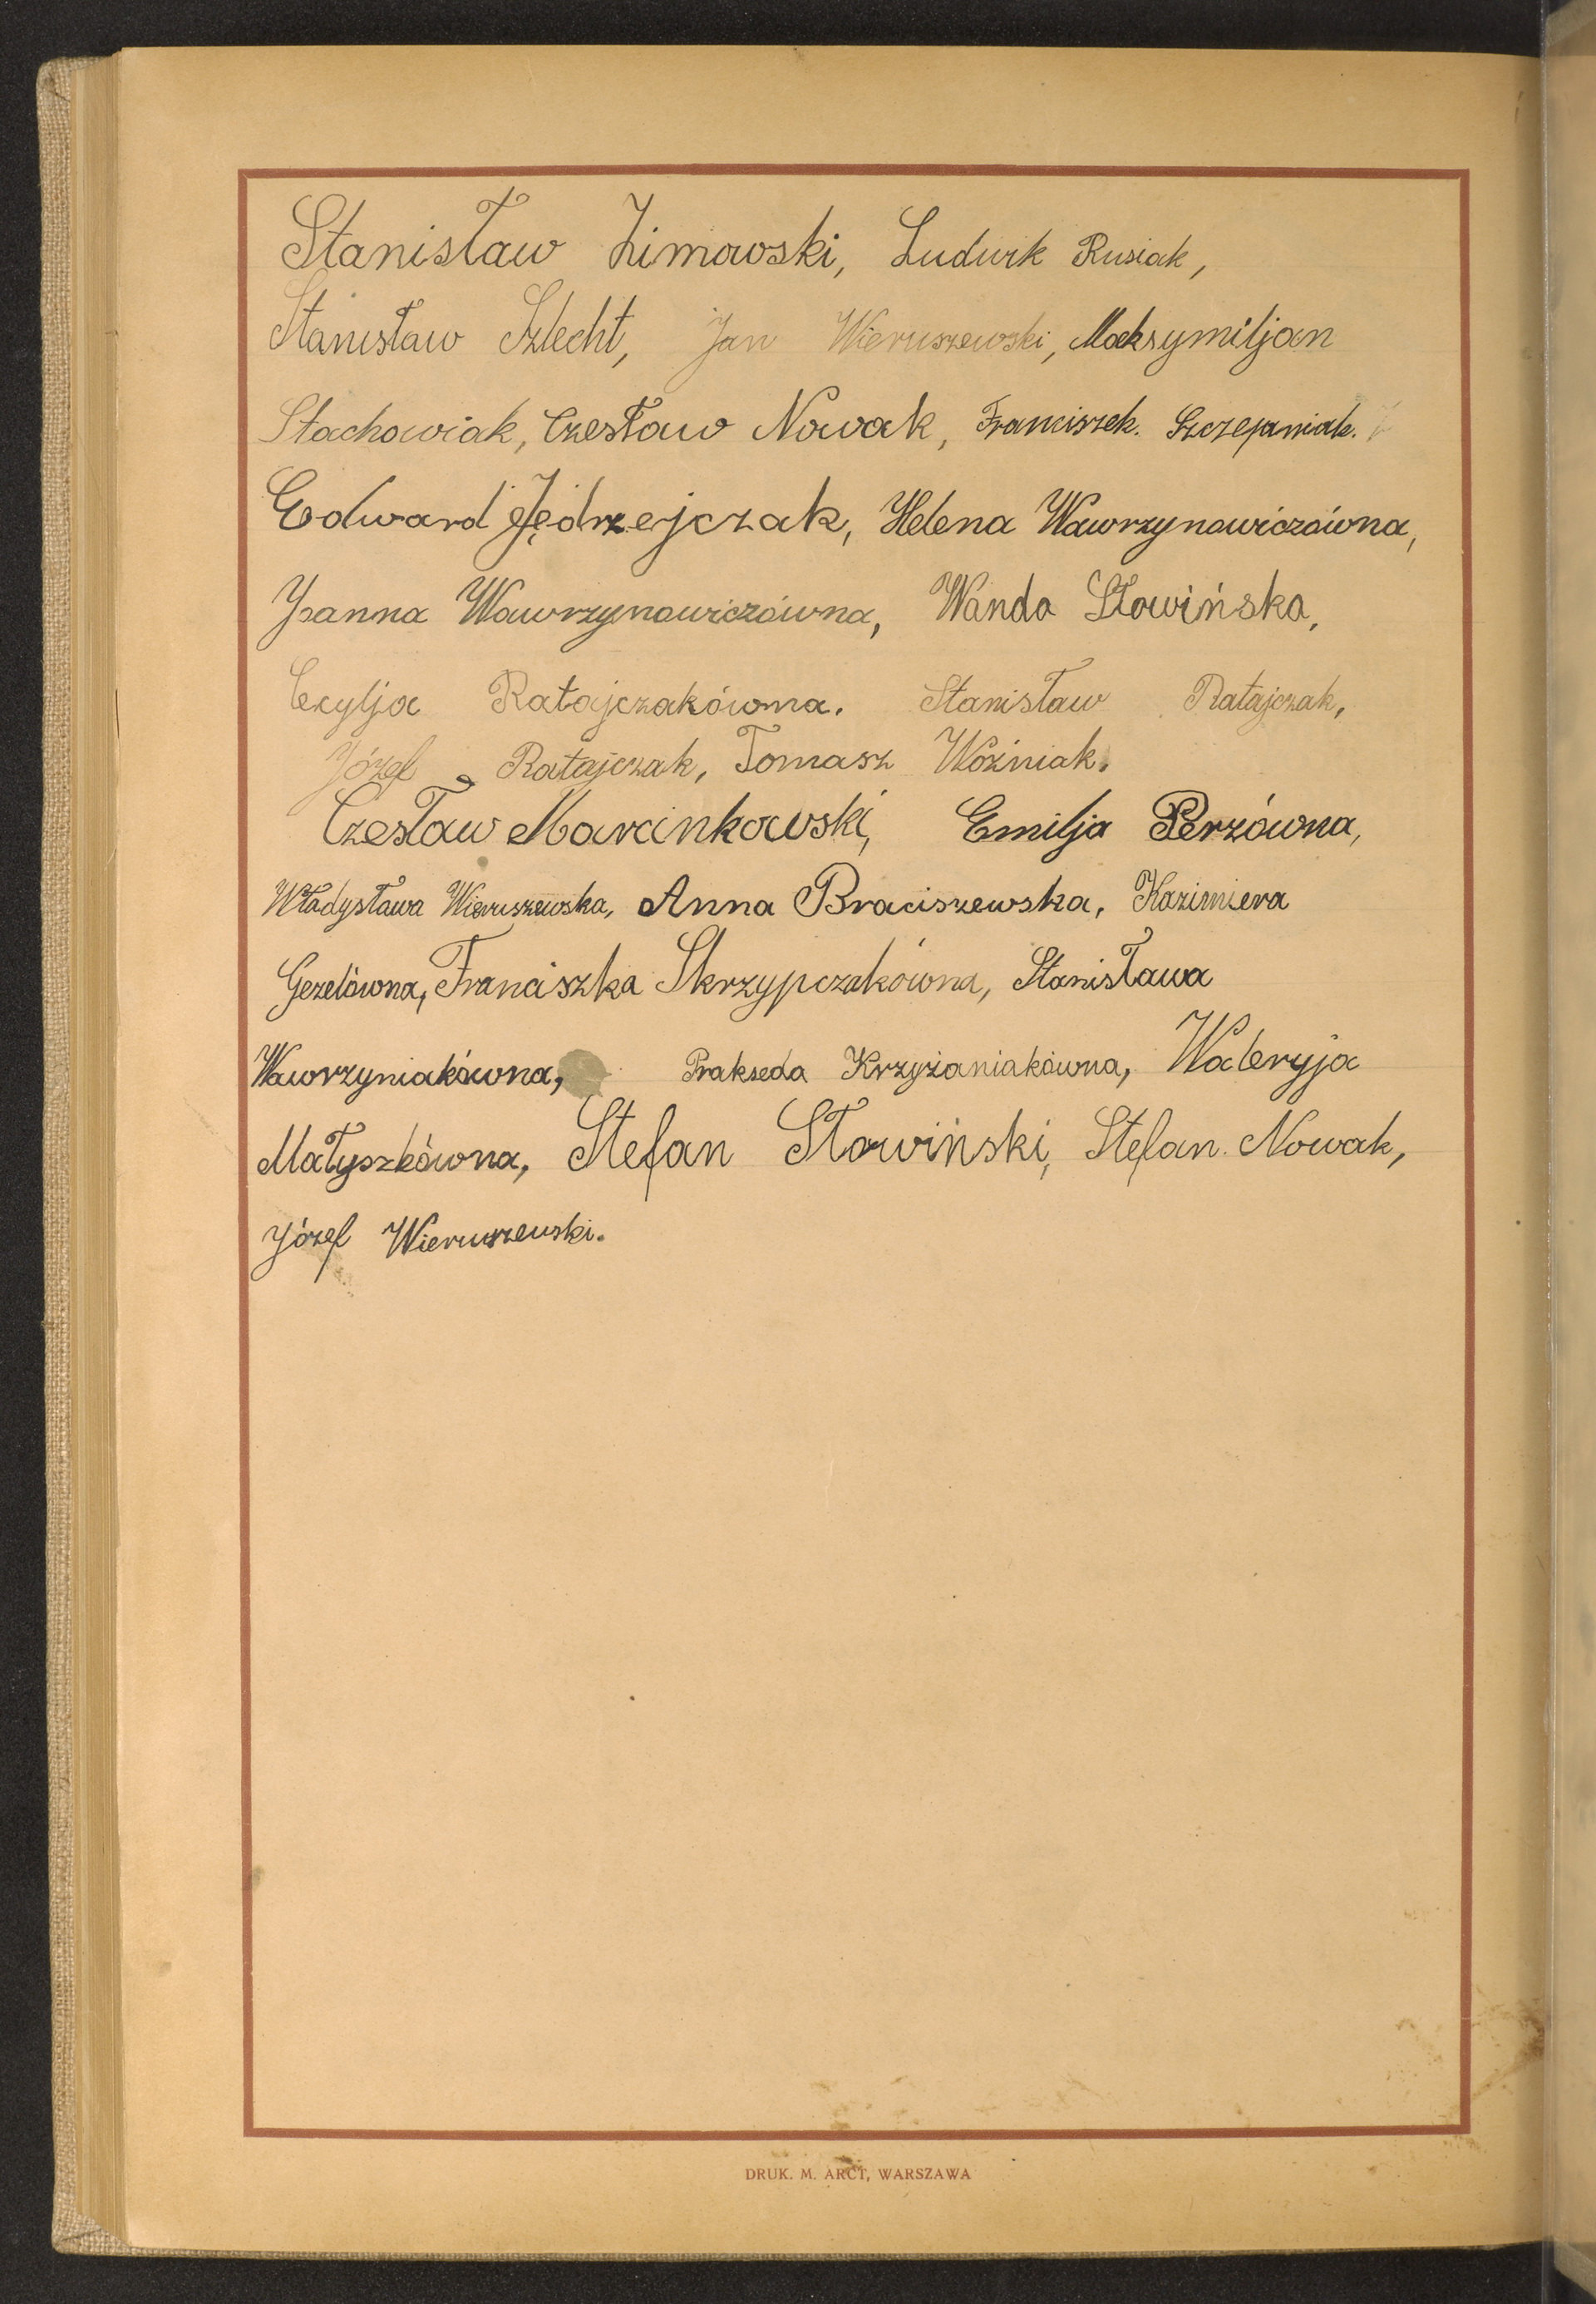 Stanisław Zimowski, Ludwik Rusiak,
Stanisław Szlecht, Jan Wieruszewski, Maksymiljan
Stachowiak, Czesław Nowak, Franciszek. Szczepaniak.
Edward Jędrzejczak, Helena Wawrzynowiczówna,
Joanna Wawrzynowiczówna, Wanda Słowińska,
Cecylja Ratajczakówna. Stanisław Ratajczak,
Józef Ratajczak, Tomasz Woźniak.
Czesław Marcinkowski, Emilja Perzówna,
Władysława Wieruszewska, Anna Braciszewska, Kazimiera
Gezelówna, Franciszka Skrzypczakówna, Stanisława
Wawrzyniakówna, Prakseda Krzyżaniakówna, Waleryja
Małyszkówna, Stefan Słowiński, Stefan. Nowak,
Józef Wieruszewski.
DRUK. M. ARCT, WARSZAWA